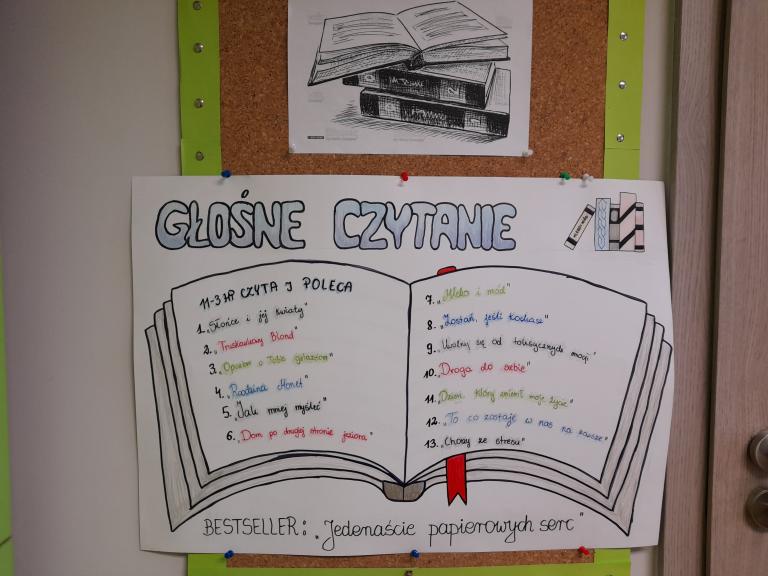 GŁOŚNE CZYTANIE
CZYTA I POLECA
1. „Słońce i jej kwiaty"
2. „Truskawkowy Blond"
3. „Opowiem o Tobie gwiazdom"
4. „Rodzina Monet"
5. „Jak mniej myśleć"
6. „Dom po drugiej stronie jeziora"
7. „Mleko i miód"
8. „Zostań, jeśli kochasz"
9. „Uwolnij się od toksycznych mocy"
10. „Droga do siebie"
11. „Dzień, który zmienił moje życie"
12. „To co zostaje w nas na zawsze"
13. „Chorzy ze stresu"
BESTSELLER: „Jedenaście papierowych serc"